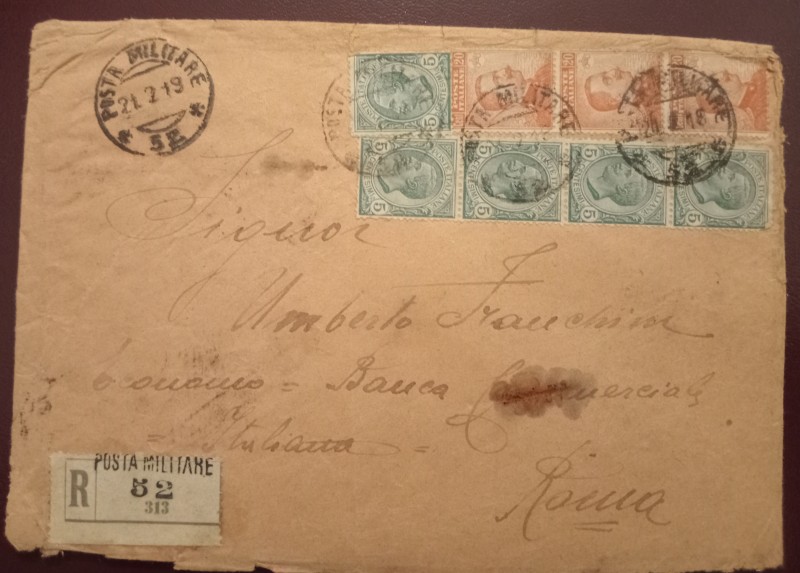 POSTA MILITARE
21.2.19
52
POSTA MILITARE
POSTA MILITARE
5
20
20
5
5
5
5
Signor
Umberto Franchini
Economo = Banca Commerciale
= Italiana =
Roma
POSTA MILITARE
R 52
313